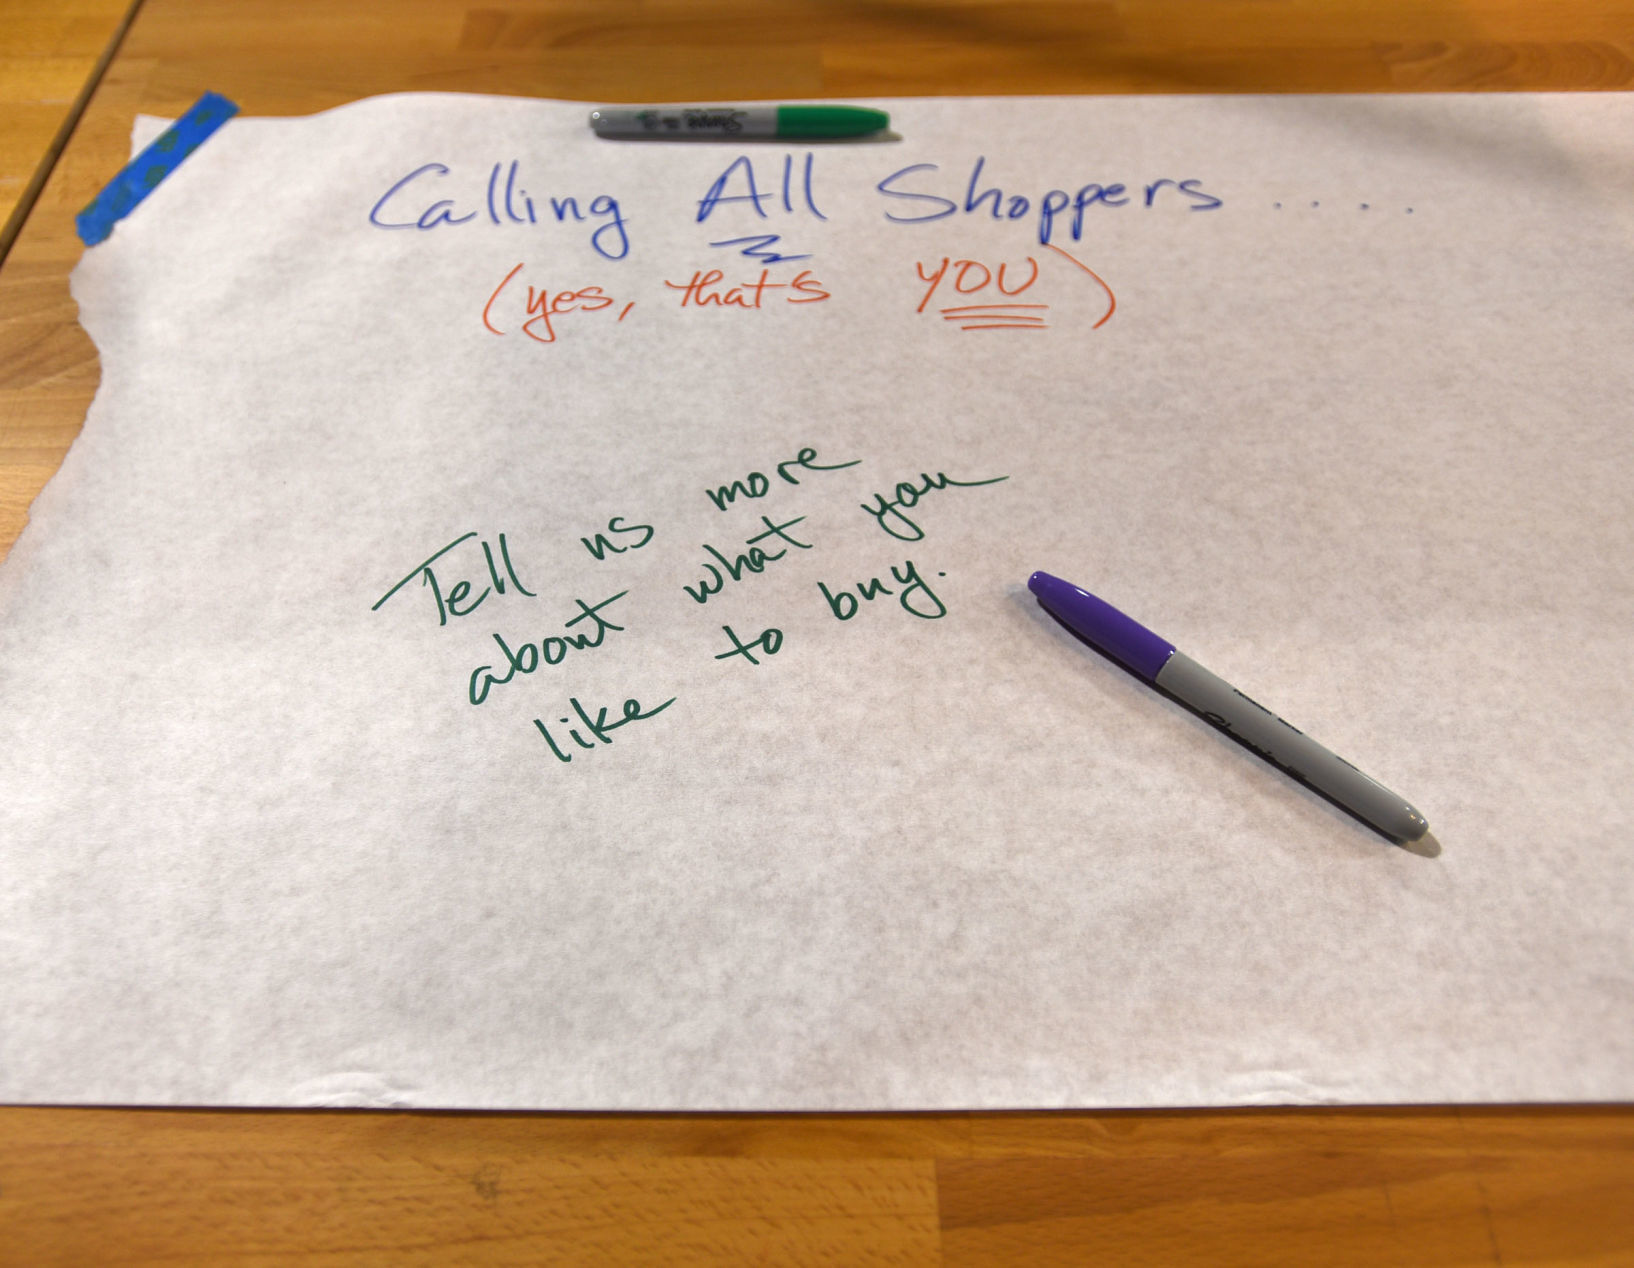 Calling All Shoppers .....
(yes, that's YOU)
Tell us more
about what you
like to buy.
Sharpie